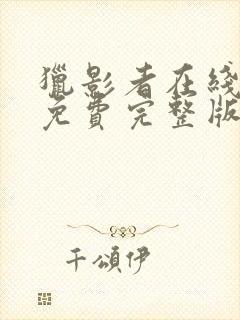 獵影者在綫
免費完整版
千頌伊